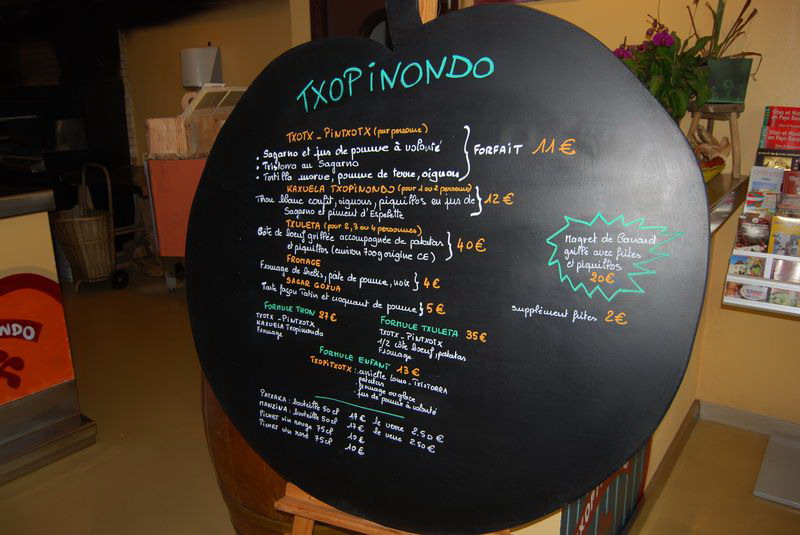 TXOPINONDO
TXOTX - PINTXOTX (par personne)
• Sagarno et jus de pomme à volonté
• Txistorra au Sagarno
• Tortilla morue, pomme de terre, oignon
FORFAIT 11€
KAXUELA TXOPINONDO (pour 1 ou 2 personnes)
Thon blanc confit, oignons, piquillos en jus de
Sagarno et piment d'Espelette
12€
TXULETA (pour 2, 3 ou 4 personnes)
Côte de boeuf grillée accompagnée de patatas
et piquillos (environ 900g origine CE)
40€
FROMAGE
Fromage de brebis, pâte de pomme, noix 4€
SAGAR GOXUA
Tarte façon Tatin et croquant de pomme 5€
FORMULE THON 27€
TXOTX - PINTXOTX
KAXUELA Txopinondo
Fromage
FORMULE TXULETA 35€
TXOTX - PINTXOTX
1/2 côte boeuf, patatas
Fromage
FORMULE ENFANT 13€
TXOMITXOTX : assiette Lomo - TXISTORRA
patatas
fromage ou glace
jus de pomme à volonté
PATXAKA : bouteille 50 cl 17€ le verre 2,50€
MANZINA : bouteille 50 cl 17€ le verre 2,50€
PICHET vin rouge 75cl 10€
PICHET vin rosé 75cl 10€
Magret de Canard
grillé avec frites
et piquillos
20€
supplément frites 2€
NONDO
Sites et Mu
en Pays Bas